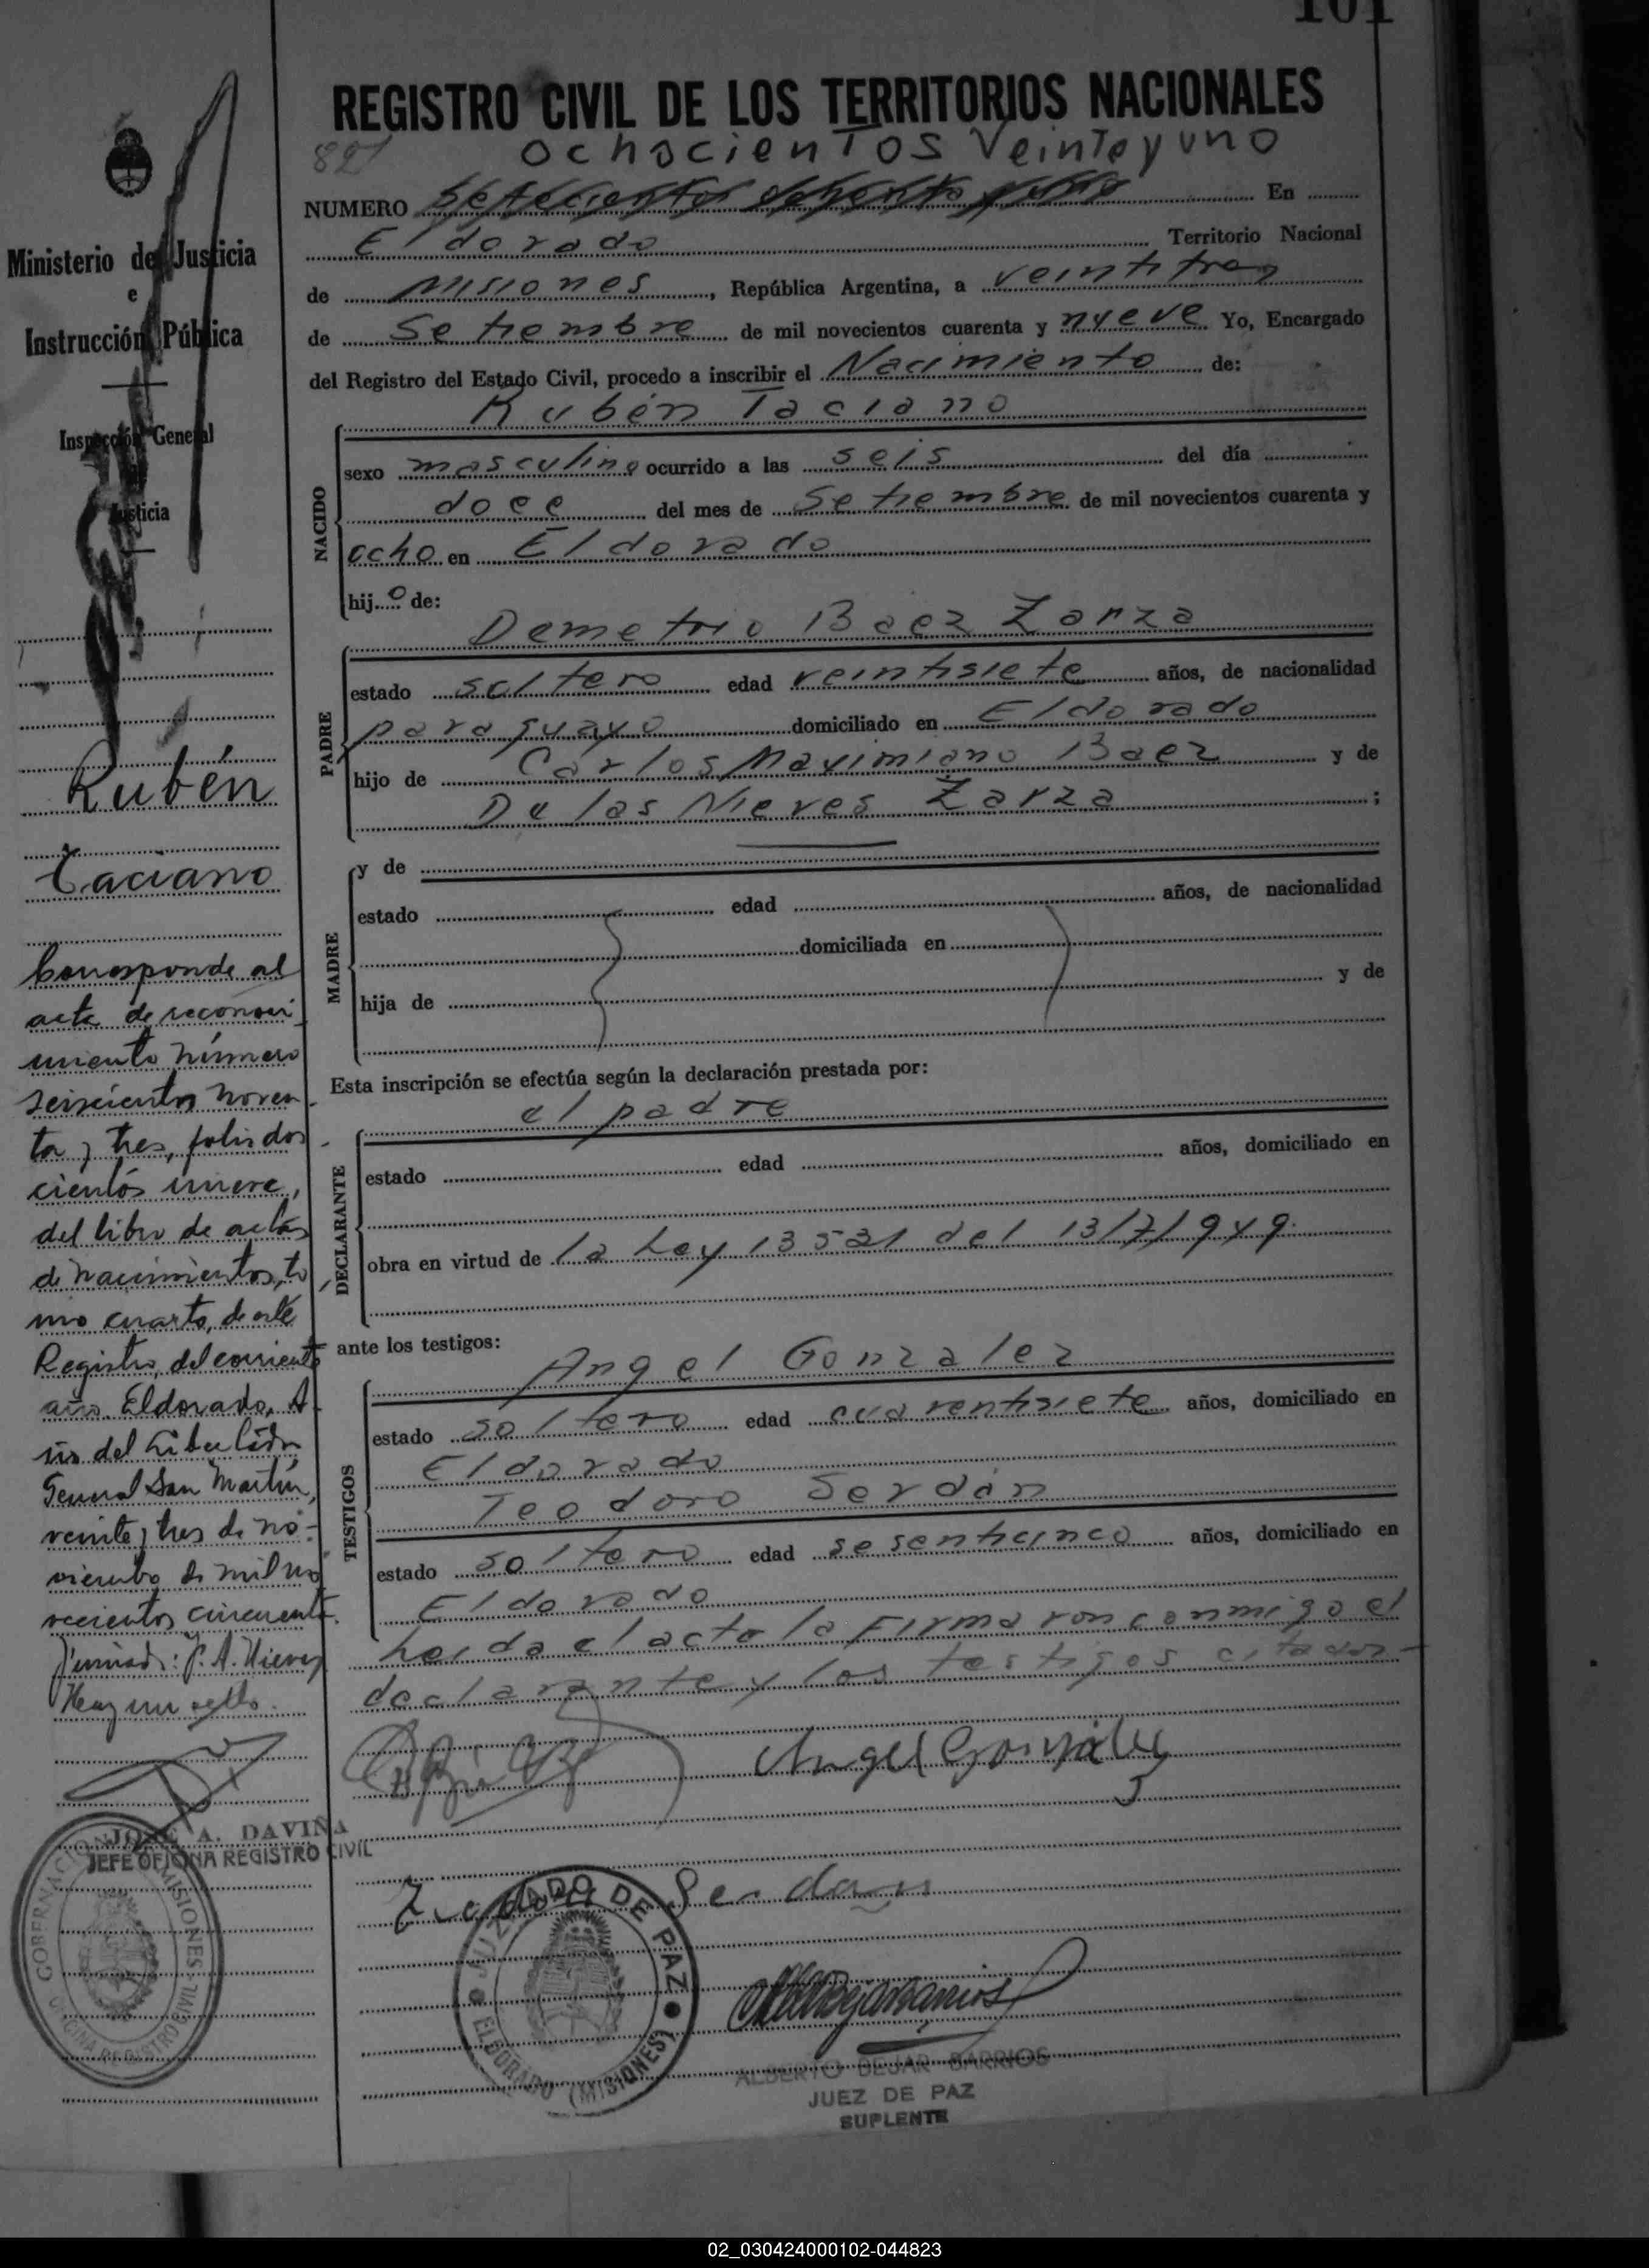 101
REGISTRO CIVIL DE LOS TERRITORIOS NACIONALES
821 ochocientos Veinte y uno
NUMERO En
Eldorado Territorio Nacional
de Misiones, República Argentina, a veintitres
de Setiembre de mil novecientos cuarenta y nueve Yo, Encargado
del Registro del Estado Civil, procedo a inscribir el Nacimiento de:
Rubén Taciano
NACIDO
sexo masculino ocurrido a las seis del día
doce del mes de Setiembre de mil novecientos cuarenta y
ocho en Eldorado
hijo de:
Demetrio Baez Zarza
PADRE
estado soltero edad veintisiete años, de nacionalidad
paraguayo domiciliado en Eldorado
hijo de Carlos Maximiano Baez y de
De las Nieves Zarza ;
MADRE
y de
estado edad años, de nacionalidad
domiciliada en
hija de y de
Esta inscripción se efectúa según la declaración prestada por:
el padre
DECLARANTE
estado edad años, domiciliado en
obra en virtud de la Ley 13521 del 13/7/949.
ante los testigos:
Angel Gonzalez
TESTIGOS
estado soltero edad cuarentisiete años, domiciliado en
Eldorado
Teodoro Serdán
estado soltero edad sesenticinco años, domiciliado en
Eldorado
Leida el acta la Firmaron conmigo el
declarante y los testigos citados-
Angel González
Serdan
JUZGADO DE PAZ
ELDORADO (MISIONES)
ALBERTO BEJAR BARRIOS
JUEZ DE PAZ
SUPLENTE
Ministerio de Justicia
e
Instrucción Pública
Inspección General
Justicia
Rubén
Taciano
Corresponde al
acta de reconoci-
miento número
seiscientos noven-
ta y tres, folio dos-
cientos nueve,
del libro de actas
de nacimientos, to-
mo cuarto, de este
Registro, del corriente
año. Eldorado, A
ño del Libertador
General San Martín,
veinte y tres de no-
viembre de mil no
vecientos cincuenta.
Firmado: J. A. Nieves
Hay un sello.
JOSE A. DAVIÑA
JEFE OFICINA REGISTRO CIVIL
GOBERNACION MISIONES
OFICINA REGISTRO CIVIL
02_030424000102-044823